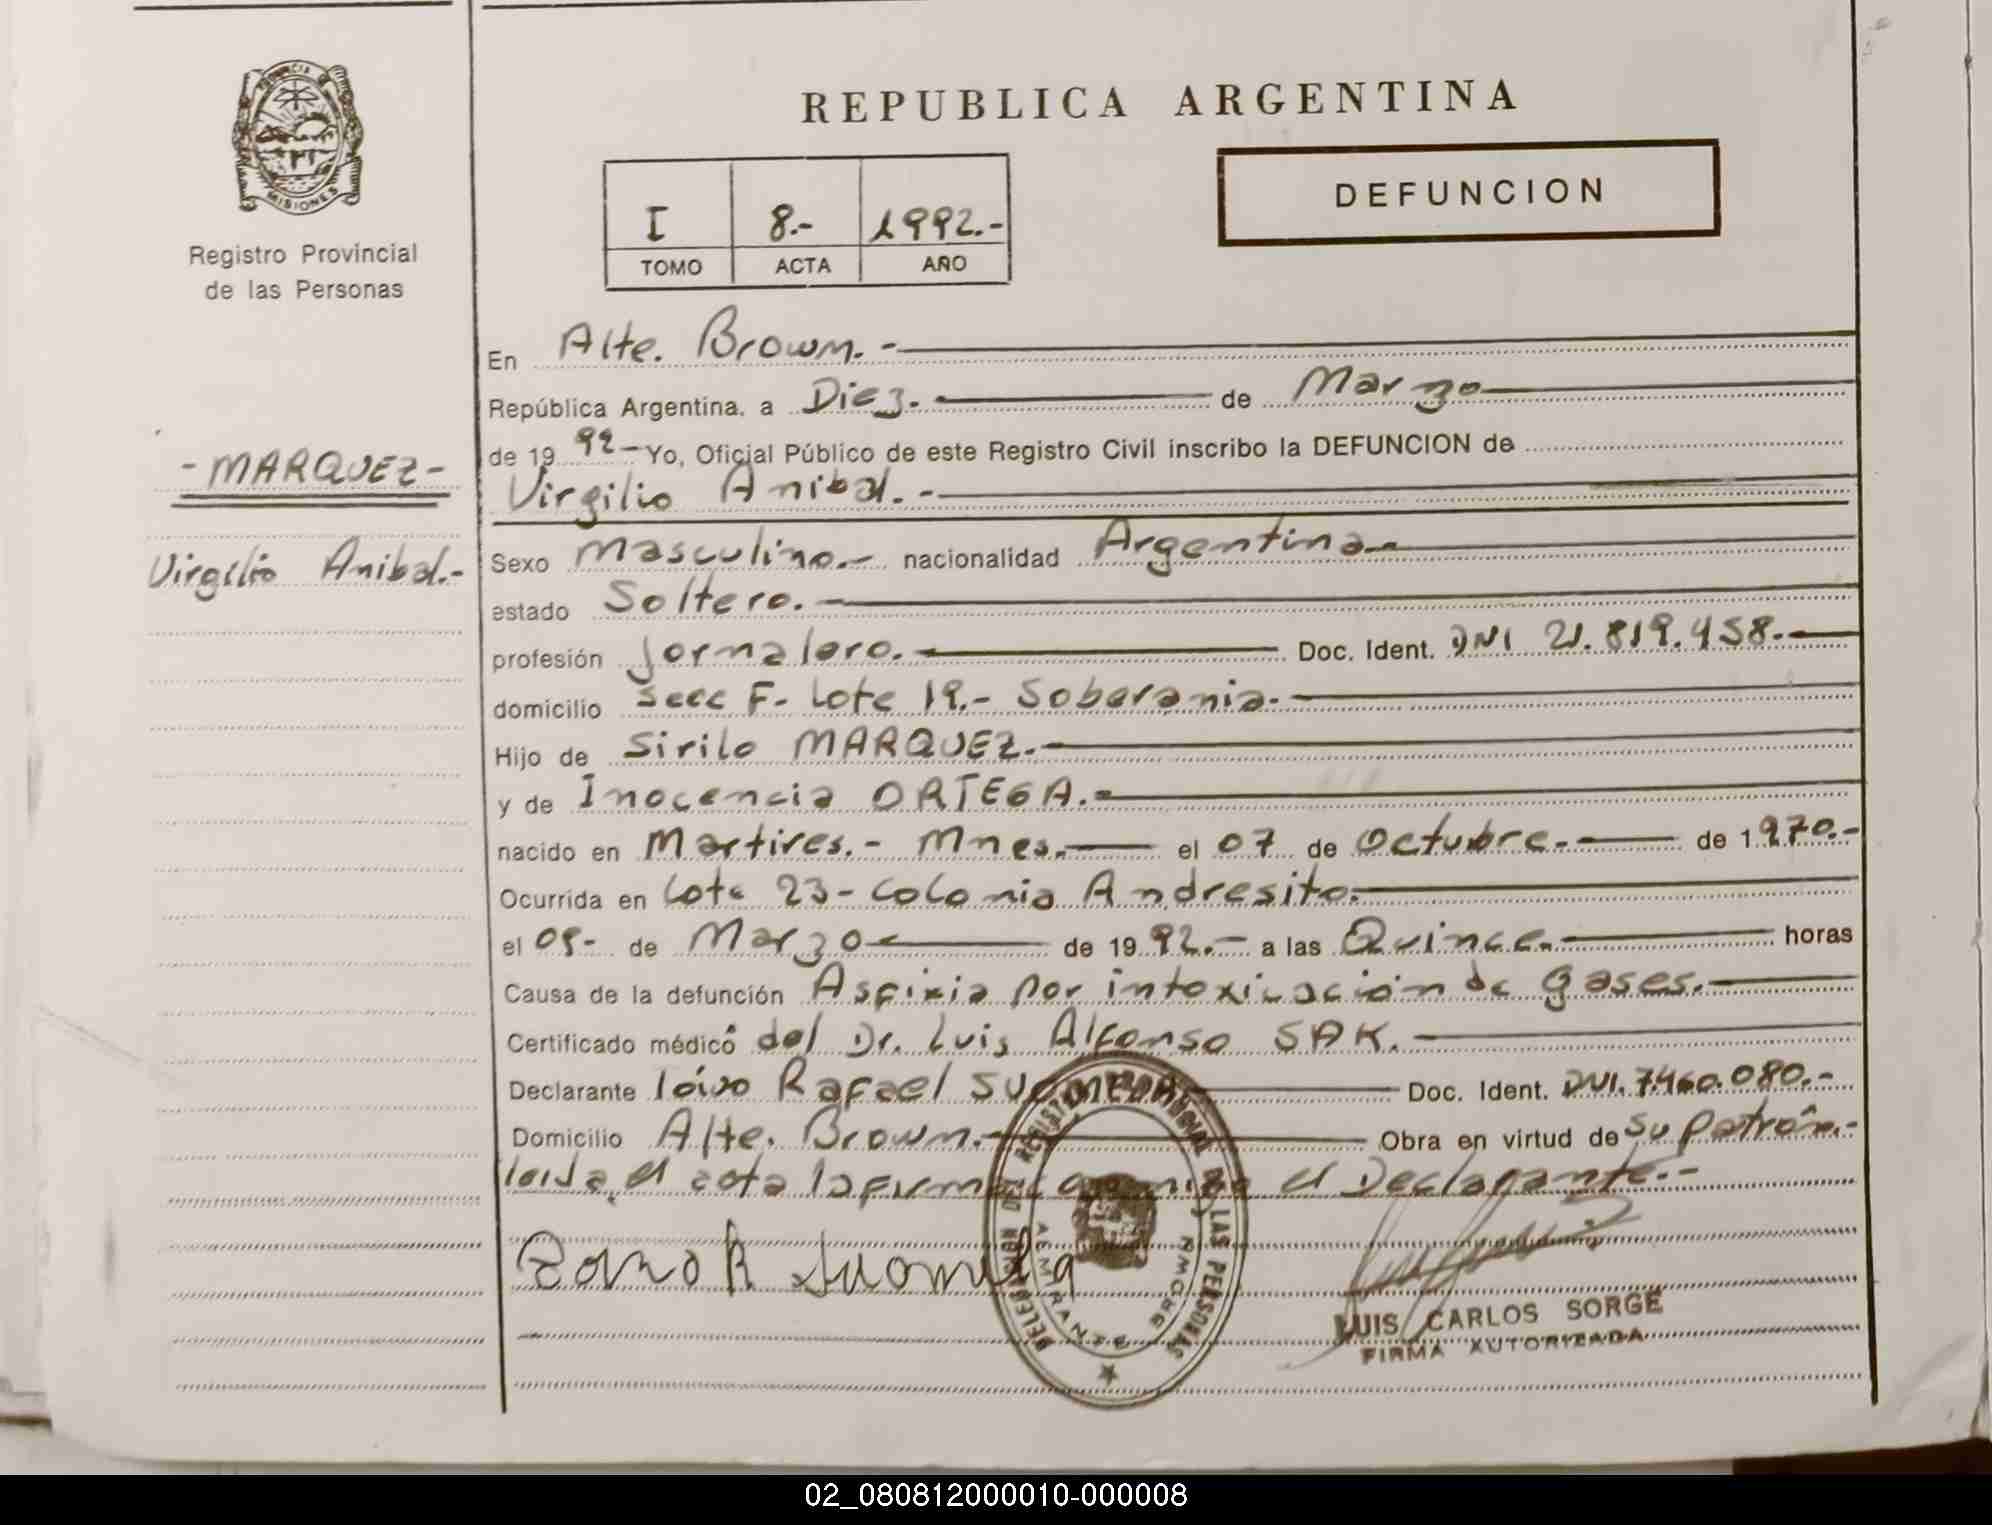 REPUBLICA ARGENTINA
DEFUNCION
PROVINCIA
MISIONES
Registro Provincial
de las Personas
I 8.- 1992.-
TOMO ACTA AÑO
- MARQUEZ -
Virgilio Anibal.-
En Alte. Brown.-
República Argentina, a Diez. de Marzo
de 19 92 - Yo, Oficial Público de este Registro Civil inscribo la DEFUNCION de
Virgilio Anibal.-
Sexo Masculino.- nacionalidad Argentina-
estado Soltero.-
profesión Jornalero.- Doc. Ident. DNI 21.819.458.-
domicilio Secc F- Lote 19.- Soberania.-
Hijo de Sirilo MARQUEZ.-
y de Inocencia ORTEGA.-
nacido en Martires.- Mnes.- el 07 de Octubre.- de 1970.-
Ocurrida en Lote 23 - Colonia Andresito.-
el 09- de Marzo de 19 92.- a las Quince.- horas
Causa de la defunción Asfixia por intoxicación de gases.-
Certificado médico del Dr. Luis Alfonso SAK.-
Declarante Rafael Doc. Ident. DNI. 7.460.080.-
Domicilio Alte. Brown.- Obra en virtud de Su Patrón.-
leida el acta la firma el Declarante.-
LUIS CARLOS SORGE
FIRMA AUTORIZADA
REGISTRO PROVINCIAL DE LAS PERSONAS
ALMIRANTE BROWN
02_080812000010-000008